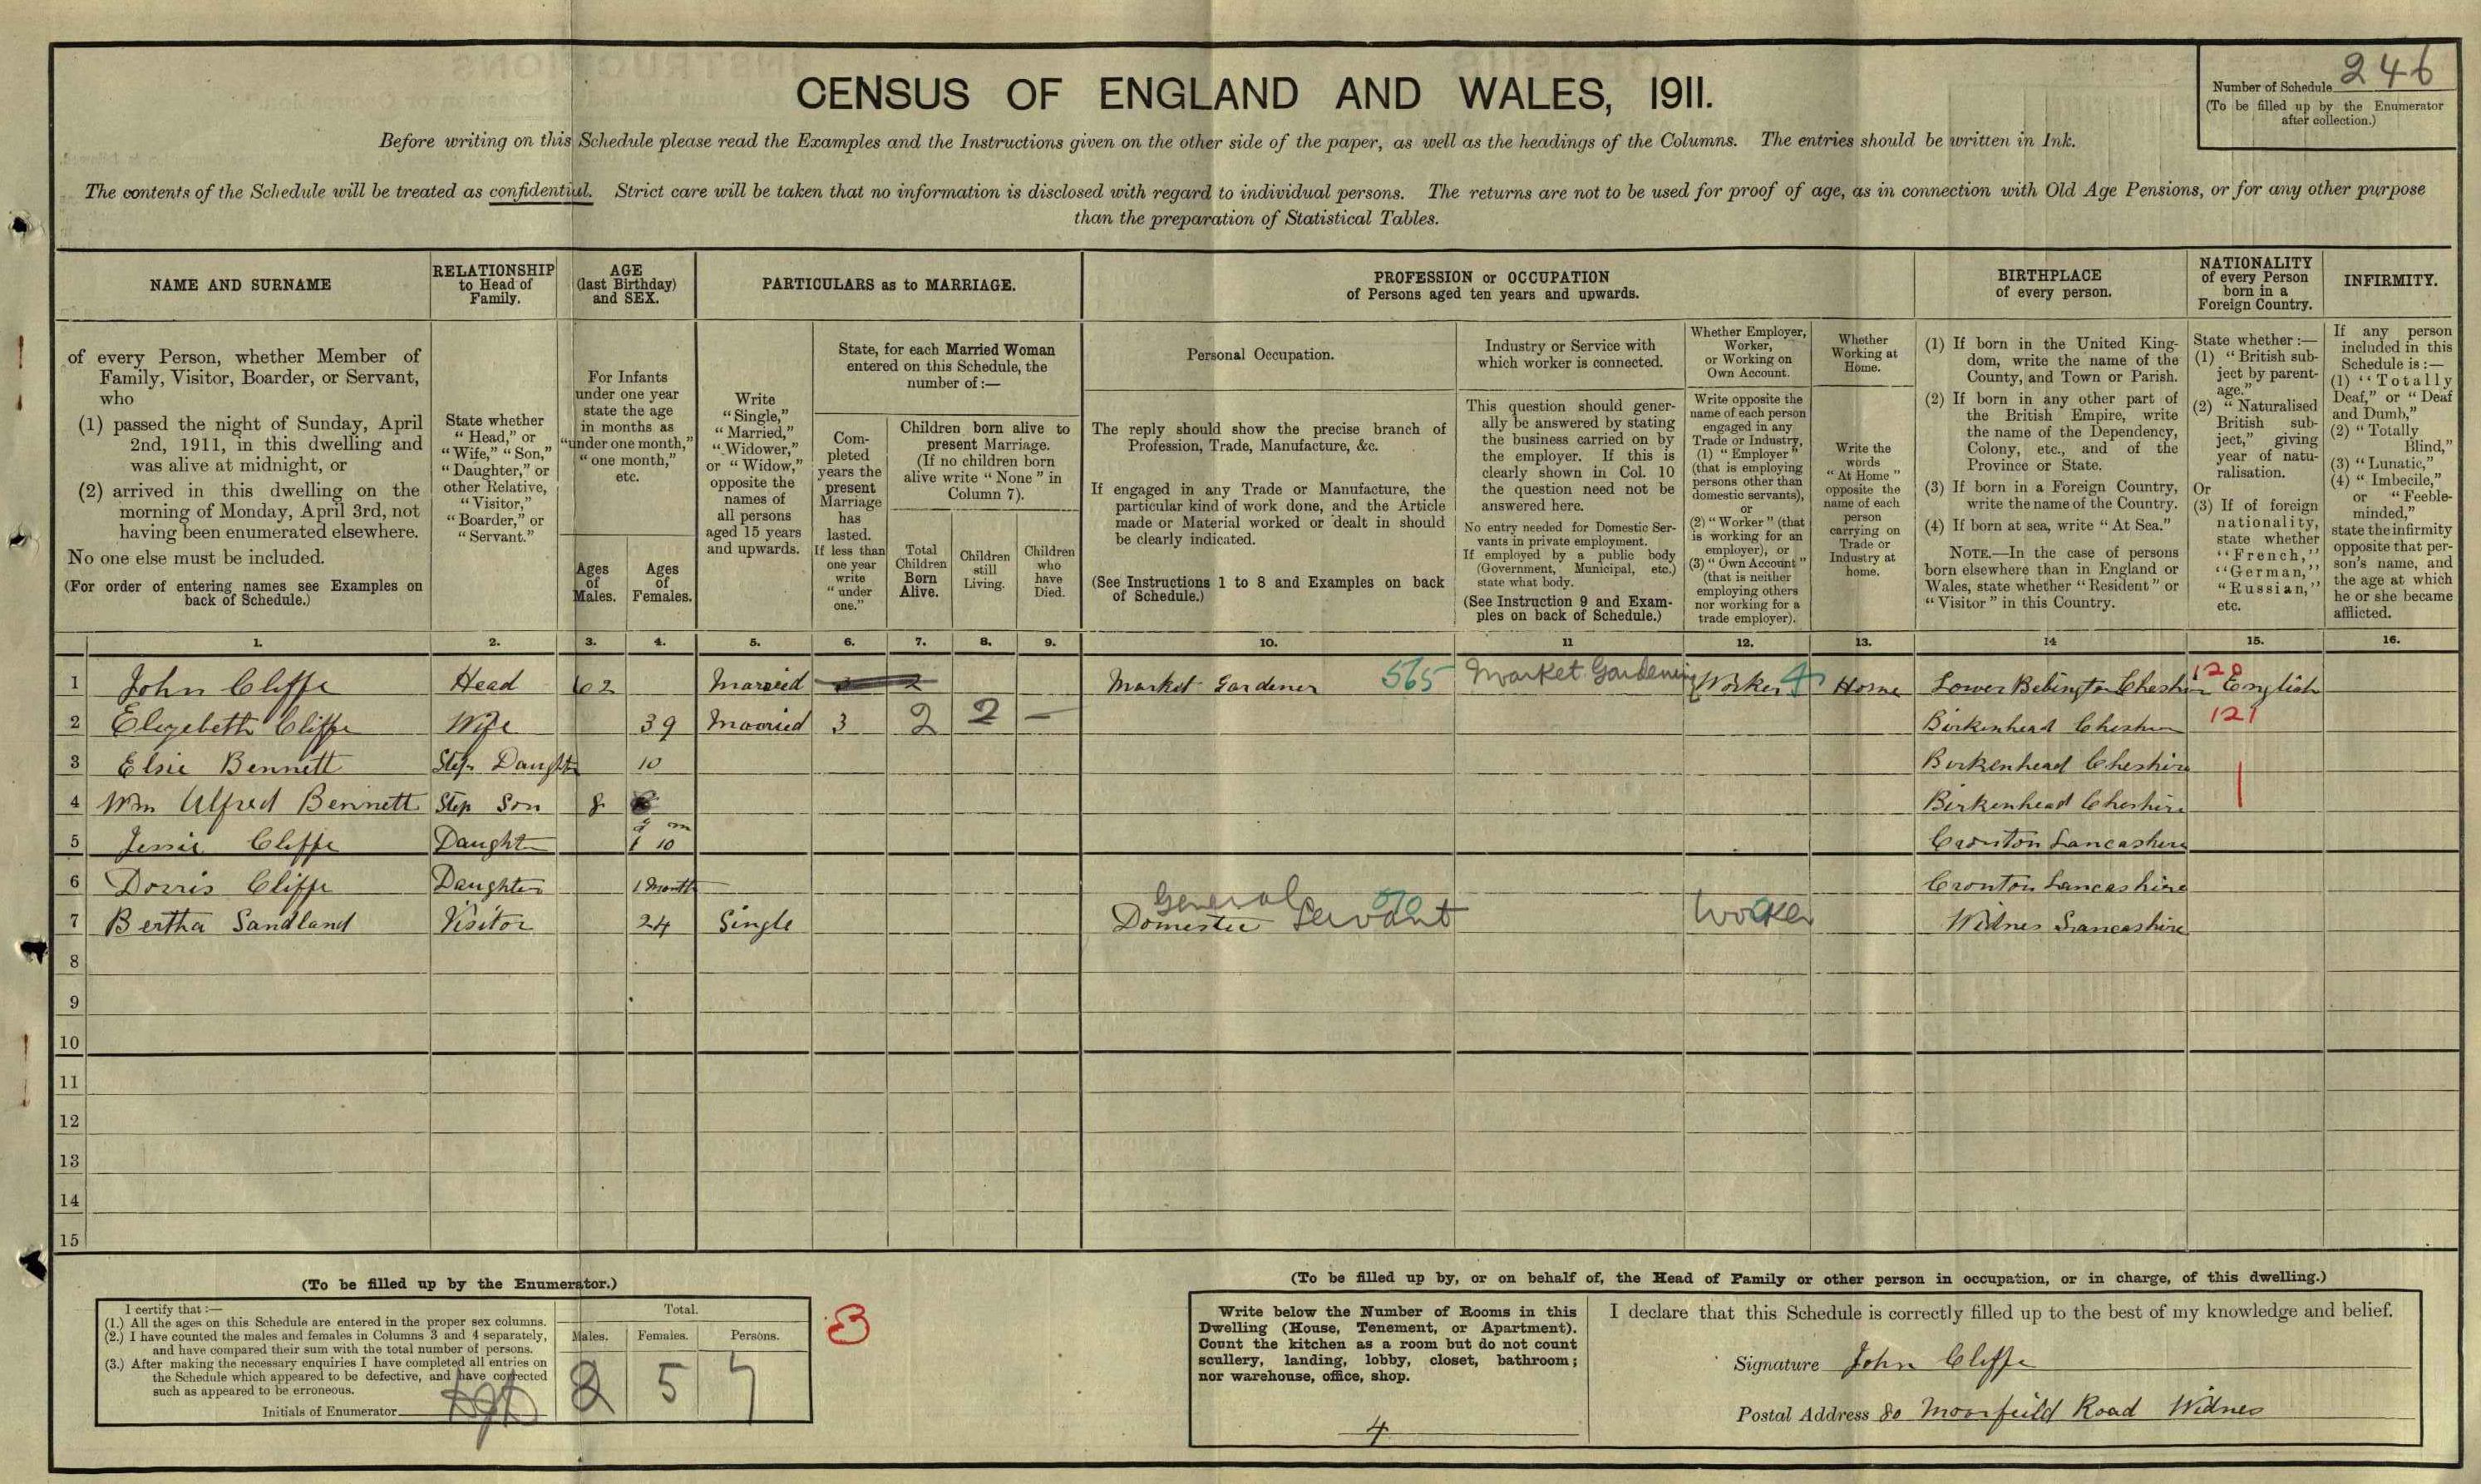 CENSUS OF ENGLAND AND WALES, 1911.
Number of Schedule 246
(To be filled up by the Enumerator
after collection.)
Before writing on this Schedule please read the Examples and the Instructions given on the other side of the paper, as well as the headings of the Columns. The entries should be written in Ink.
The contents of the Schedule will be treated as confidential. Strict care will be taken that no information is disclosed with regard to individual persons. The returns are not to be used for proof of age, as in connection with Old Age Pensions, or for any other purpose
than the preparation of Statistical Tables.
NAME AND SURNAME
of every Person, whether Member of
Family, Visitor, Boarder, or Servant,
who
(1) passed the night of Sunday, April
2nd, 1911, in this dwelling and
was alive at midnight, or
(2) arrived in this dwelling on the
morning of Monday, April 3rd, not
having been enumerated elsewhere.
No one else must be included.
(For order of entering names see Examples on
back of Schedule.)
RELATIONSHIP
to Head of
Family.
State whether
"Head," or
"Wife," "Son,"
"Daughter," or
other Relative,
"Visitor,"
"Boarder," or
"Servant."
AGE
(last Birthday)
and SEX.
For Infants
under one year
state the age
in months as
"under one month,"
"one month,"
etc.
Ages
of
Males.
Ages
of
Females.
PARTICULARS as to MARRIAGE.
Write
"Single,"
"Married,"
"Widower,"
or "Widow,"
opposite the
names of
all persons
aged 15 years
and upwards.
State, for each Married Woman
entered on this Schedule, the
number of:—
Com-
pleted
years the
present
Marriage
has
lasted.
If less than
one year
write
"under
one."
Children born alive to
present Marriage.
(If no children born
alive write "None" in
Column 7).
Total
Children
Born
Alive.
Children
still
Living.
Children
who
have
Died.
PROFESSION or OCCUPATION
of Persons aged ten years and upwards.
Personal Occupation.
The reply should show the precise branch of
Profession, Trade, Manufacture, &c.
If engaged in any Trade or Manufacture, the
particular kind of work done, and the Article
made or Material worked or dealt in should
be clearly indicated.
(See Instructions 1 to 8 and Examples on back
of Schedule.)
Industry or Service with
which worker is connected.
This question should gener-
ally be answered by stating
the business carried on by
the employer. If this is
clearly shown in Col. 10
the question need not be
answered here.
No entry needed for Domestic Ser-
vants in private employment.
If employed by a public body
(Government, Municipal, etc.)
state what body.
(See Instruction 9 and Exam-
ples on back of Schedule.)
Whether Employer,
Worker,
or Working on
Own Account.
Write opposite the
name of each person
engaged in any
Trade or Industry,
(1) "Employer"
(that is employing
persons other than
domestic servants),
or
(2) "Worker" (that
is working for an
employer), or
(3) "Own Account"
(that is neither
employing others
nor working for a
trade employer).
Whether
Working at
Home.
Write the
words
"At Home"
opposite the
name of each
person
carrying on
Trade or
Industry at
home.
BIRTHPLACE
of every person.
(1) If born in the United King-
dom, write the name of the
County, and Town or Parish.
(2) If born in any other part of
the British Empire, write
the name of the Dependency,
Colony, etc., and of the
Province or State.
(3) If born in a Foreign Country,
write the name of the Country.
(4) If born at sea, write "At Sea."
NOTE.—In the case of persons
born elsewhere than in England or
Wales, state whether "Resident" or
"Visitor" in this Country.
NATIONALITY
of every Person
born in a
Foreign Country.
State whether:—
(1) "British sub-
ject by parent-
age."
(2) "Naturalised
British sub-
ject," giving
year of natu-
ralisation.
Or
(3) If of foreign
nationality,
state whether
"French,"
"German,"
"Russian,"
etc.
INFIRMITY.
If any person
included in this
Schedule is:—
(1) "Totally
Deaf," or "Deaf
and Dumb,"
(2) "Totally
Blind,"
(3) "Lunatic,"
(4) "Imbecile,"
or "Feeble-
minded,"
state the infirmity
opposite that per-
son's name, and
the age at which
he or she became
afflicted.
1. 2. 3. 4. 5. 6. 7. 8. 9. 10. 11 12. 13. 14 15. 16.
1 John Cliffe Head 62 Married 2 Market Gardener 565 Market Gardening Worker 4 Home Lower Bebington Cheshire 120 English
2 Elizebeth Cliffe Wife 39 Married 3 2 2 — Birkenhead Cheshire 121
3 Elsie Bennett Step Daught 10 Birkenhead Cheshire
4 Wm Alfred Bennett Step Son 8 Birkenhead Cheshire
5 Jessie Cliffe Daught 1 10 m Cronton Lancashire
6 Dorris Cliffe Daughter 1 Month Cronton Lancashire
7 Bertha Sandland Visitor 24 Single General Domestic Servant Worker Widnes Lancashire
8
9
10
11
12
13
14
15
(To be filled up by the Enumerator.)
I certify that:—
(1.) All the ages on this Schedule are entered in the proper sex columns.
(2.) I have counted the males and females in Columns 3 and 4 separately,
and have compared their sum with the total number of persons.
(3.) After making the necessary enquiries I have completed all entries on
the Schedule which appeared to be defective, and have corrected
such as appeared to be erroneous.
Initials of Enumerator
Total.
Males. Females. Persons.
2 5 7
(To be filled up by, or on behalf of, the Head of Family or other person in occupation, or in charge, of this dwelling.)
Write below the Number of Rooms in this
Dwelling (House, Tenement, or Apartment).
Count the kitchen as a room but do not count
scullery, landing, lobby, closet, bathroom;
nor warehouse, office, shop.
4
I declare that this Schedule is correctly filled up to the best of my knowledge and belief.
Signature John Cliffe
Postal Address 80 Moorfield Road Widnes